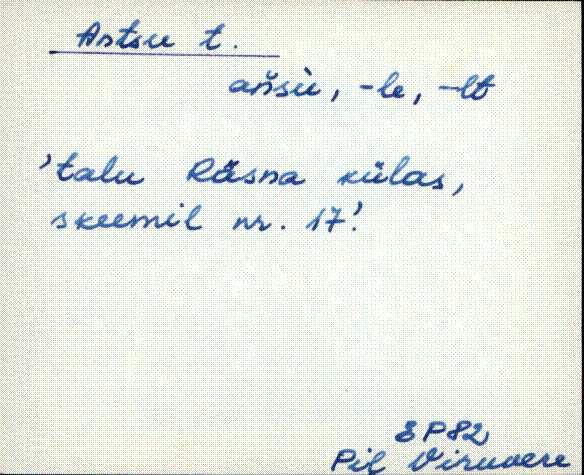 Artsu t.
ańsù, -le, -lt
'talu Räsna külas,
skeemil nr. 17'.
EP82
Pil Viruvere